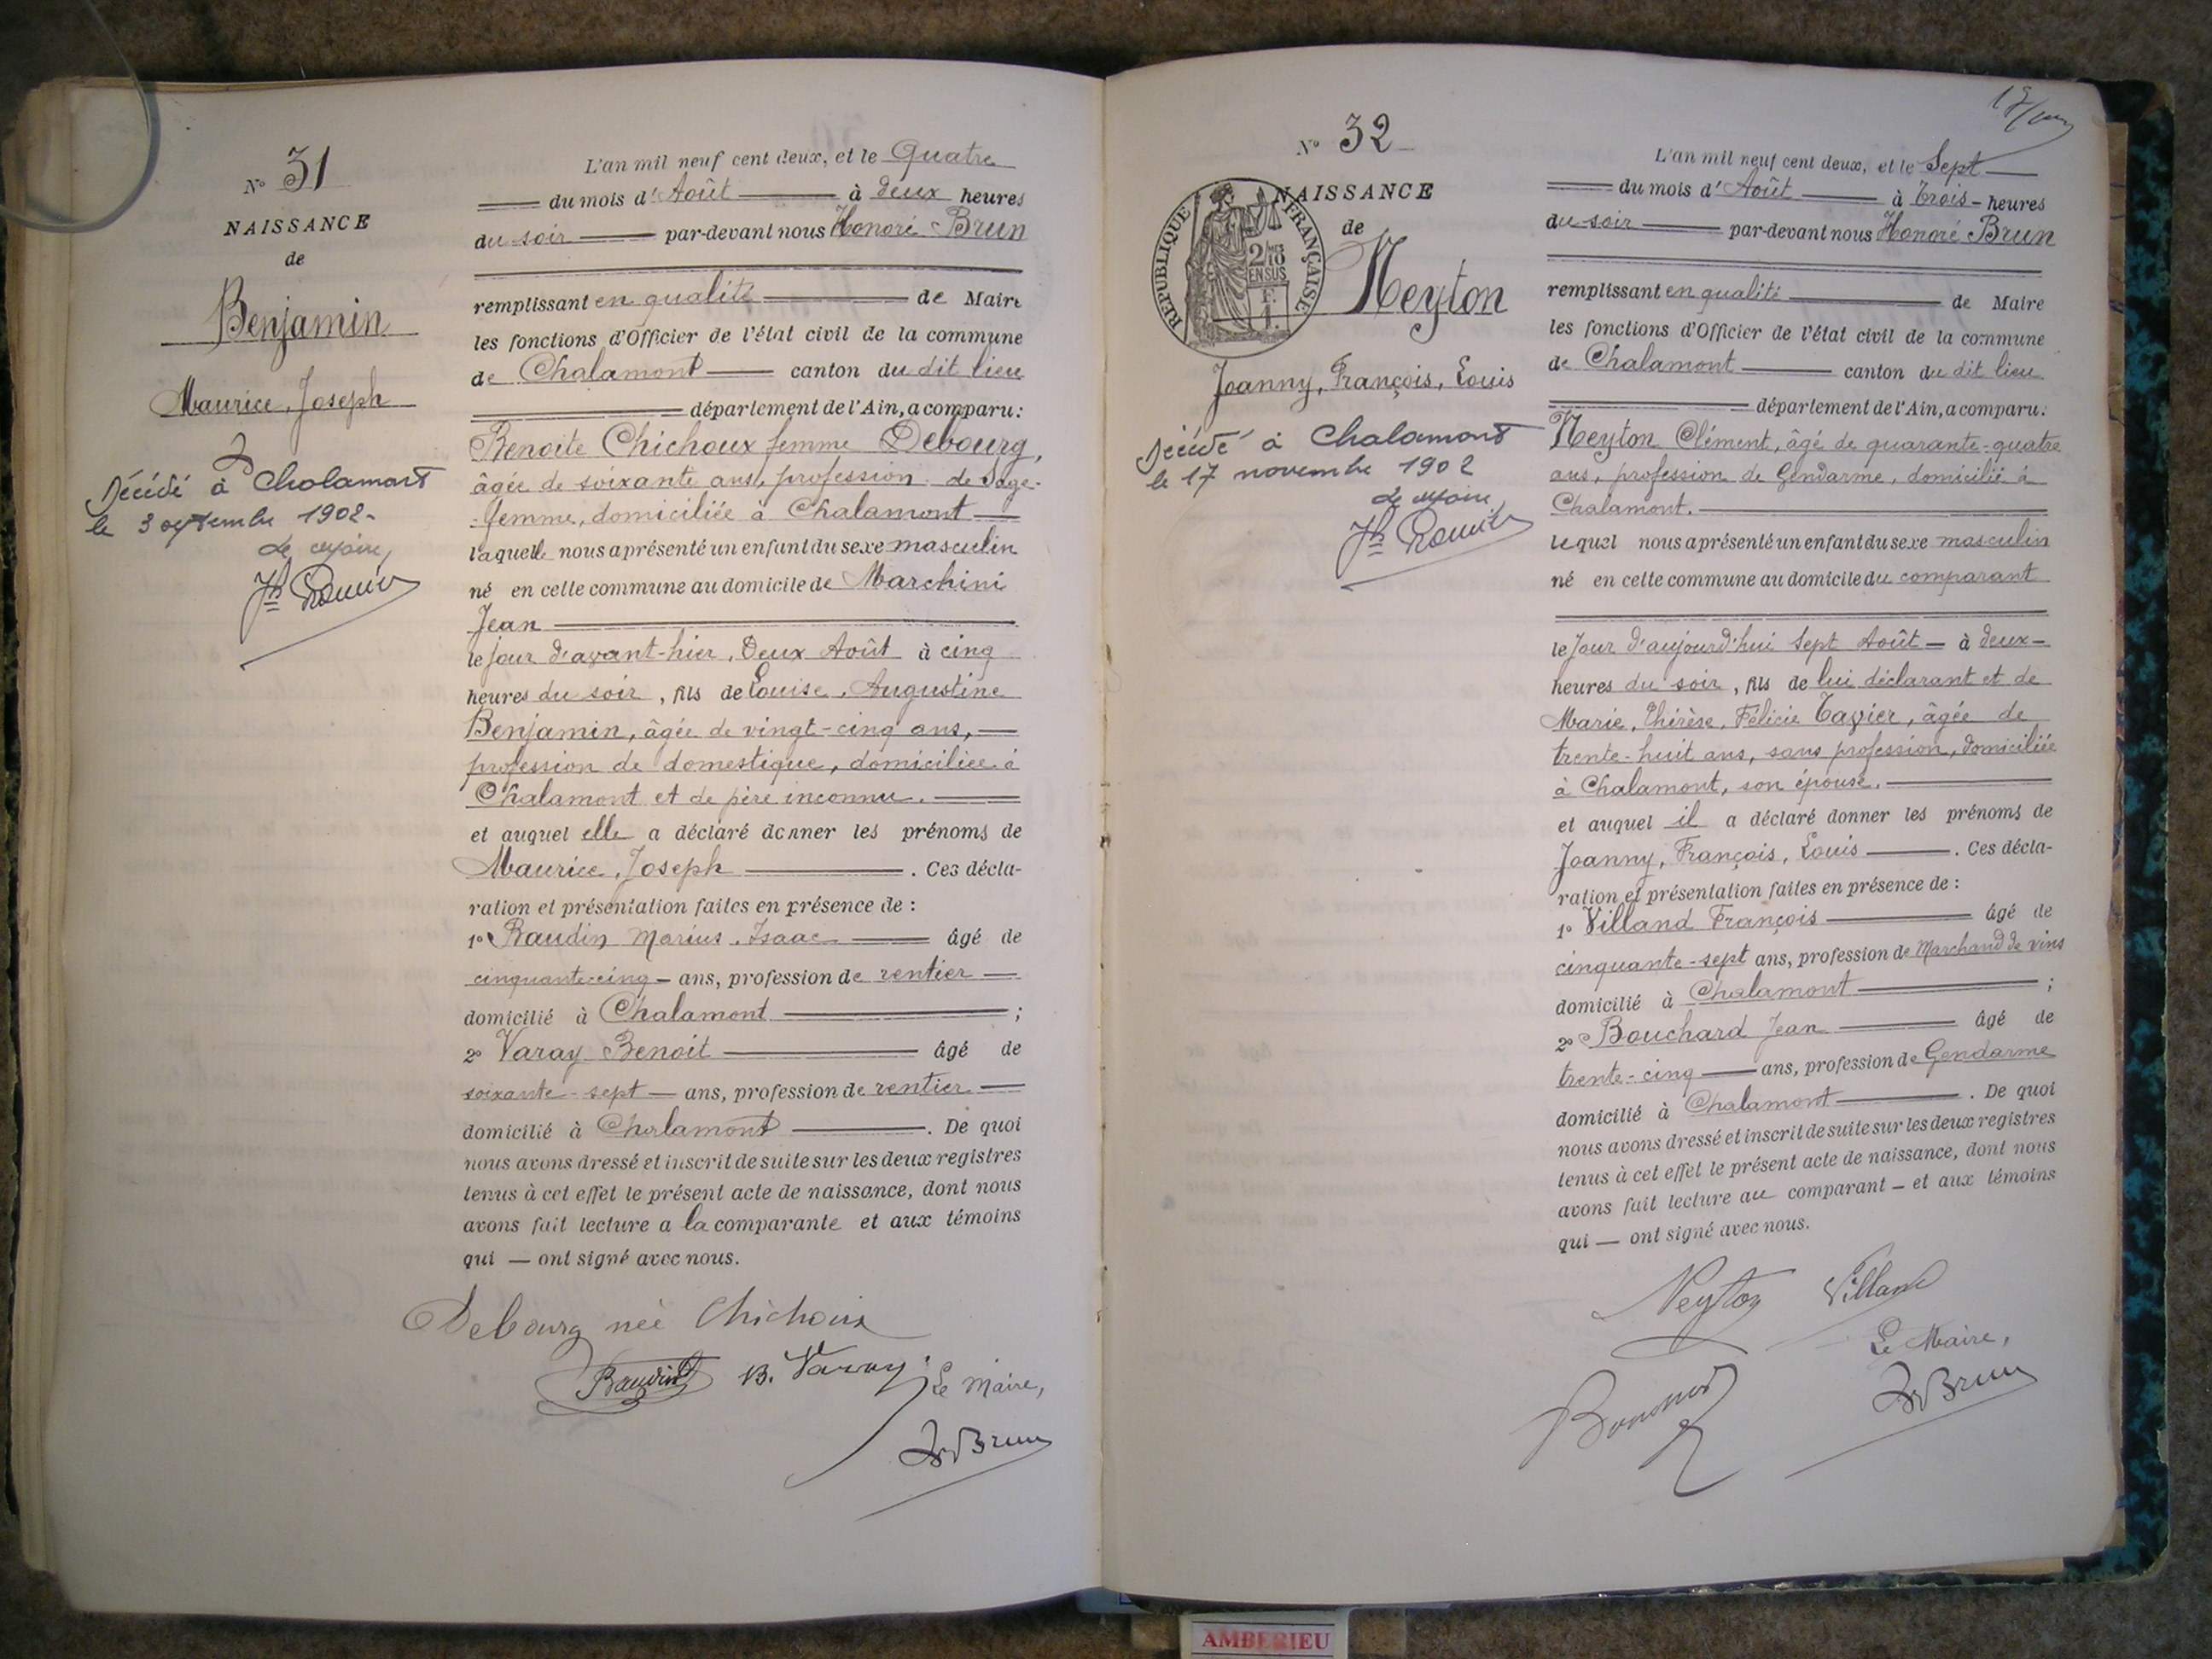 N° 31
NAISSANCE
de
Benjamin
Maurice, Joseph
Décédé à Chalamont
le 3 septembre 1902.
Le Maire,
L'an mil neuf cent deux, et le Quatre
du mois d'Août à deux heures
du soir par-devant nous Honoré Brun
remplissant en qualité de Maire
les fonctions d'Officier de l'état civil de la commune
de Chalamont canton du dit lieu
département de l'Ain, a comparu:
Benoite Chichoux femme Debourg,
âgée de soixante ans, profession de Sage-
-femme, domiciliée à Chalamont
laquelle nous a présenté un enfant du sexe masculin
né en cette commune au domicile de Marchini
Jean
le jour d'avant-hier, Deux Août à cinq
heures du soir, fils de Louise, Augustine
Benjamin, âgée de vingt-cinq ans,
profession de domestique, domiciliée à
Chalamont et de père inconnu.
et auquel elle a déclaré donner les prénoms de
Maurice, Joseph . Ces décla-
ration et présentation faites en présence de :
1° Baudin Marius, Isaac âgé de
cinquante-cinq ans, profession de rentier
domicilié à Chalamont ;
2° Varay Benoit âgé de
soixante-sept ans, profession de rentier
domicilié à Chalamont . De quoi
nous avons dressé et inscrit de suite sur les deux registres
tenus à cet effet le présent acte de naissance, dont nous
avons fait lecture a la comparante et aux témoins
qui — ont signé avec nous.
Debourg née Chichoux
Baudin B. Varay Le Maire,
Brun
N° 32
NAISSANCE
de
RÉPUBLIQUE FRANÇAISE
2/10
EN SUS
Neyton
Joanny, François, Louis
Décédé à Chalamont
le 17 novembre 1902
Le Maire,
L'an mil neuf cent deux, et le Sept
du mois d'Août à Trois heures
du soir par-devant nous Honoré Brun
remplissant en qualité de Maire
les fonctions d'Officier de l'état civil de la commune
de Chalamont canton du dit lieu
département de l'Ain, a comparu:
Neyton Clément, âgé de quarante-quatre
ans, profession de Gendarme, domicilié à
Chalamont.
lequel nous a présenté un enfant du sexe masculin
né en cette commune au domicile du comparant
le Jour d'aujourd'hui Sept Août — à deux
heures du soir, fils de lui déclarant et de
Marie, Thérèse, Félicie Tavier, âgée de
trente-huit ans, sans profession, domiciliée
à Chalamont, son épouse.
et auquel il a déclaré donner les prénoms de
Joanny, François, Louis . Ces décla-
ration et présentation faites en présence de :
1° Villand François âgé de
cinquante-sept ans, profession de Marchand de vins
domicilié à Chalamont ;
2° Bouchard Jean âgé de
trente-cinq ans, profession de Gendarme
domicilié à Chalamont . De quoi
nous avons dressé et inscrit de suite sur les deux registres
tenus à cet effet le présent acte de naissance, dont nous
avons fait lecture au comparant — et aux témoins
qui — ont signé avec nous.
Neyton Villand
Le Maire,
Brun
AMBERIEU